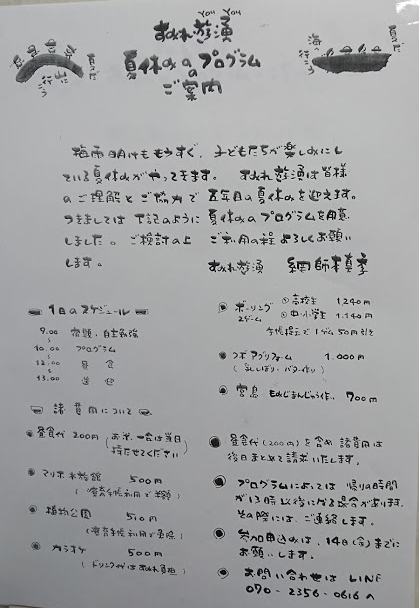 YOU YOU
すみれ遊湧
夏休みのプログラム
の
ご案内
夏だ
山に
行こう
夏だ
海へ
行こう
梅雨明けももうすぐ、子どもたちが楽しみにし
ている夏休みがやってきます。 すみれ遊湧は皆様
のご理解とご協力で五年目の夏休みを迎えます。
つきましては下記のように夏休みのプログラムを用意
しました。ご検討の上 ご利用の程よろしくお願い
します。
すみれ遊湧 網師本真季
1日のスケジュール
9.00 宿題・自主勉強
10.00 プログラム
12.00 昼食
13.00 送迎
諸費用について
昼食代 200円 (お米一合は当日
持たせてください)
マリホ水族館 500円
(療育手帳利用で半額)
植物公園 510円
(療育手帳利用で免除)
カラオケ 500円
(ドリンク代はすみれ負担)
ボーリング ①高校生 1,240円
2ゲーム ②中・小学生 1,140円
手帳提示で1ゲーム50円引き
アグリファーム 1,000円
(乳しぼり・バター作り)
宮島 もみじまんじゅう作り 700円
昼食代(200円)を含め諸費用は
後日まとめて請求いたします。
プログラムによっては帰りの時間
が13時以後になる場合があります。
その際には、ご連絡します。
参加申込みは、14日(金)までに
お願いします。
お問い合わせは LINE
070-2356-0616へ